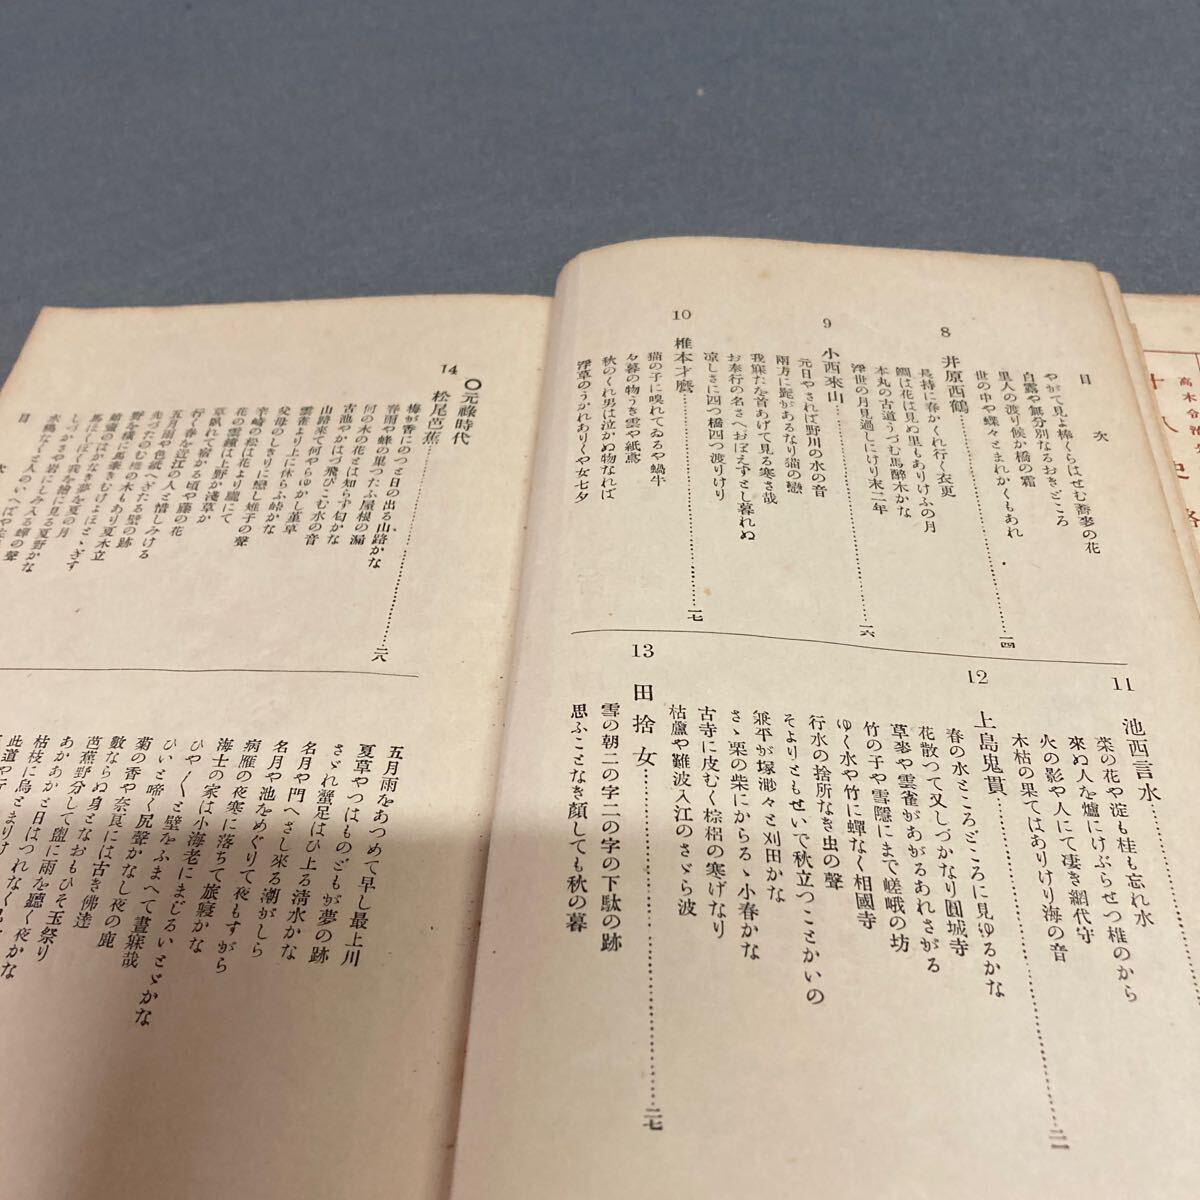 目次
やがて見よ棒くらはせむ蕎麥の花
白露や無分別なるおきどころ
里人の渡り候か橋の霜
世の中や蝶々とまれかくもあれ
8 井原西鶴……一四
長持に春かくれ行く衣更
鯛は花は見ぬ里もありけふの月
本丸の古道うづむ馬醉木かな
浮世の月見過しにけり末二年
9 小西來山……一六
元日やされば野川の水の音
兩方に髭があるなり猫の戀
我寐たを首あげて見る寒さ哉
お奉行の名さへおぼえずとし暮れぬ
凉しさに四つ橋四つ渡りけり
10 椎本才麿……一七
猫の子に嗅れてゐるや蝸牛
夕暮の物うき雲や紙鳶
秋のくれ男は泣かぬ物なれば
浮草のうかれありくや女七夕
11 池西言水
菜の花や淀も桂も忘れ水
來ぬ人を爐にけぶらせつ椎のから
火の影や人にて凄き網代守
木枯の果てはありけり海の音
12 上島鬼貫……二一
春の水ところどころに見ゆるかな
花散つて又しづかなり圓城寺
草麥や雲雀があがるあれさがる
竹の子や雪隱にまで嵯峨の坊
ゆく水や竹に蟬なく相國寺
行水の捨所なき虫の聲
そよりともせいで秋立つことかいの
兼平が塚渺々と刈田かな
さゝ栗の柴にからるゝ小春かな
古寺に皮むく棕梠の寒げなり
枯蘆や難波入江のさゞら波
13 田捨女……二七
雪の朝二の字二の字の下駄の跡
思ふことなき顏しても秋の暮
〇元祿時代
14 松尾芭蕉……二八
梅が香にのつと日の出る山路かな
春雨や蜂の巢つたふ屋根の漏
何の木の花とは知らず匂かな
古池やかはづ飛びこむ水の音
山路來て何やらゆかし菫草
雲雀より上に休らふ峠かな
父母のしきりに戀し雉子の聲
辛崎の松は花より朧にて
花の雲鐘は上野か淺草か
草臥れて宿かる頃や藤の花
行く春を近江の人と惜しみける
五月雨や色紙へぎたる壁の跡
先づたのむ椎の木もあり夏木立
野を横に馬牽きむけよほとゝぎす
蛸壺のはかなき夢を夏の月
馬ほくほく我を繪に見る夏野かな
しづかさや岩にしみ入る蟬の聲
目次
五月雨をあつめて早し最上川
夏草やつはものどもが夢の跡
さゞれ蟹足はひ上る清水かな
名月や門へさし來る潮がしら
名月や池をめぐりて夜もすがら
病雁の夜寒に落ちて旅寢かな
海士の家は小海老にまじるいとゞかな
ひやひやと壁をふまへて晝寐哉
ひいと啼く尻聲かなし夜の鹿
菊の香や奈良には古き佛達
數ならぬ身となおもひそ玉祭り
芭蕉野分して盥に雨を聽く夜かな
あかあかと日はつれなくも
枯枝に烏とまりけ
此道や行
高木
十八史